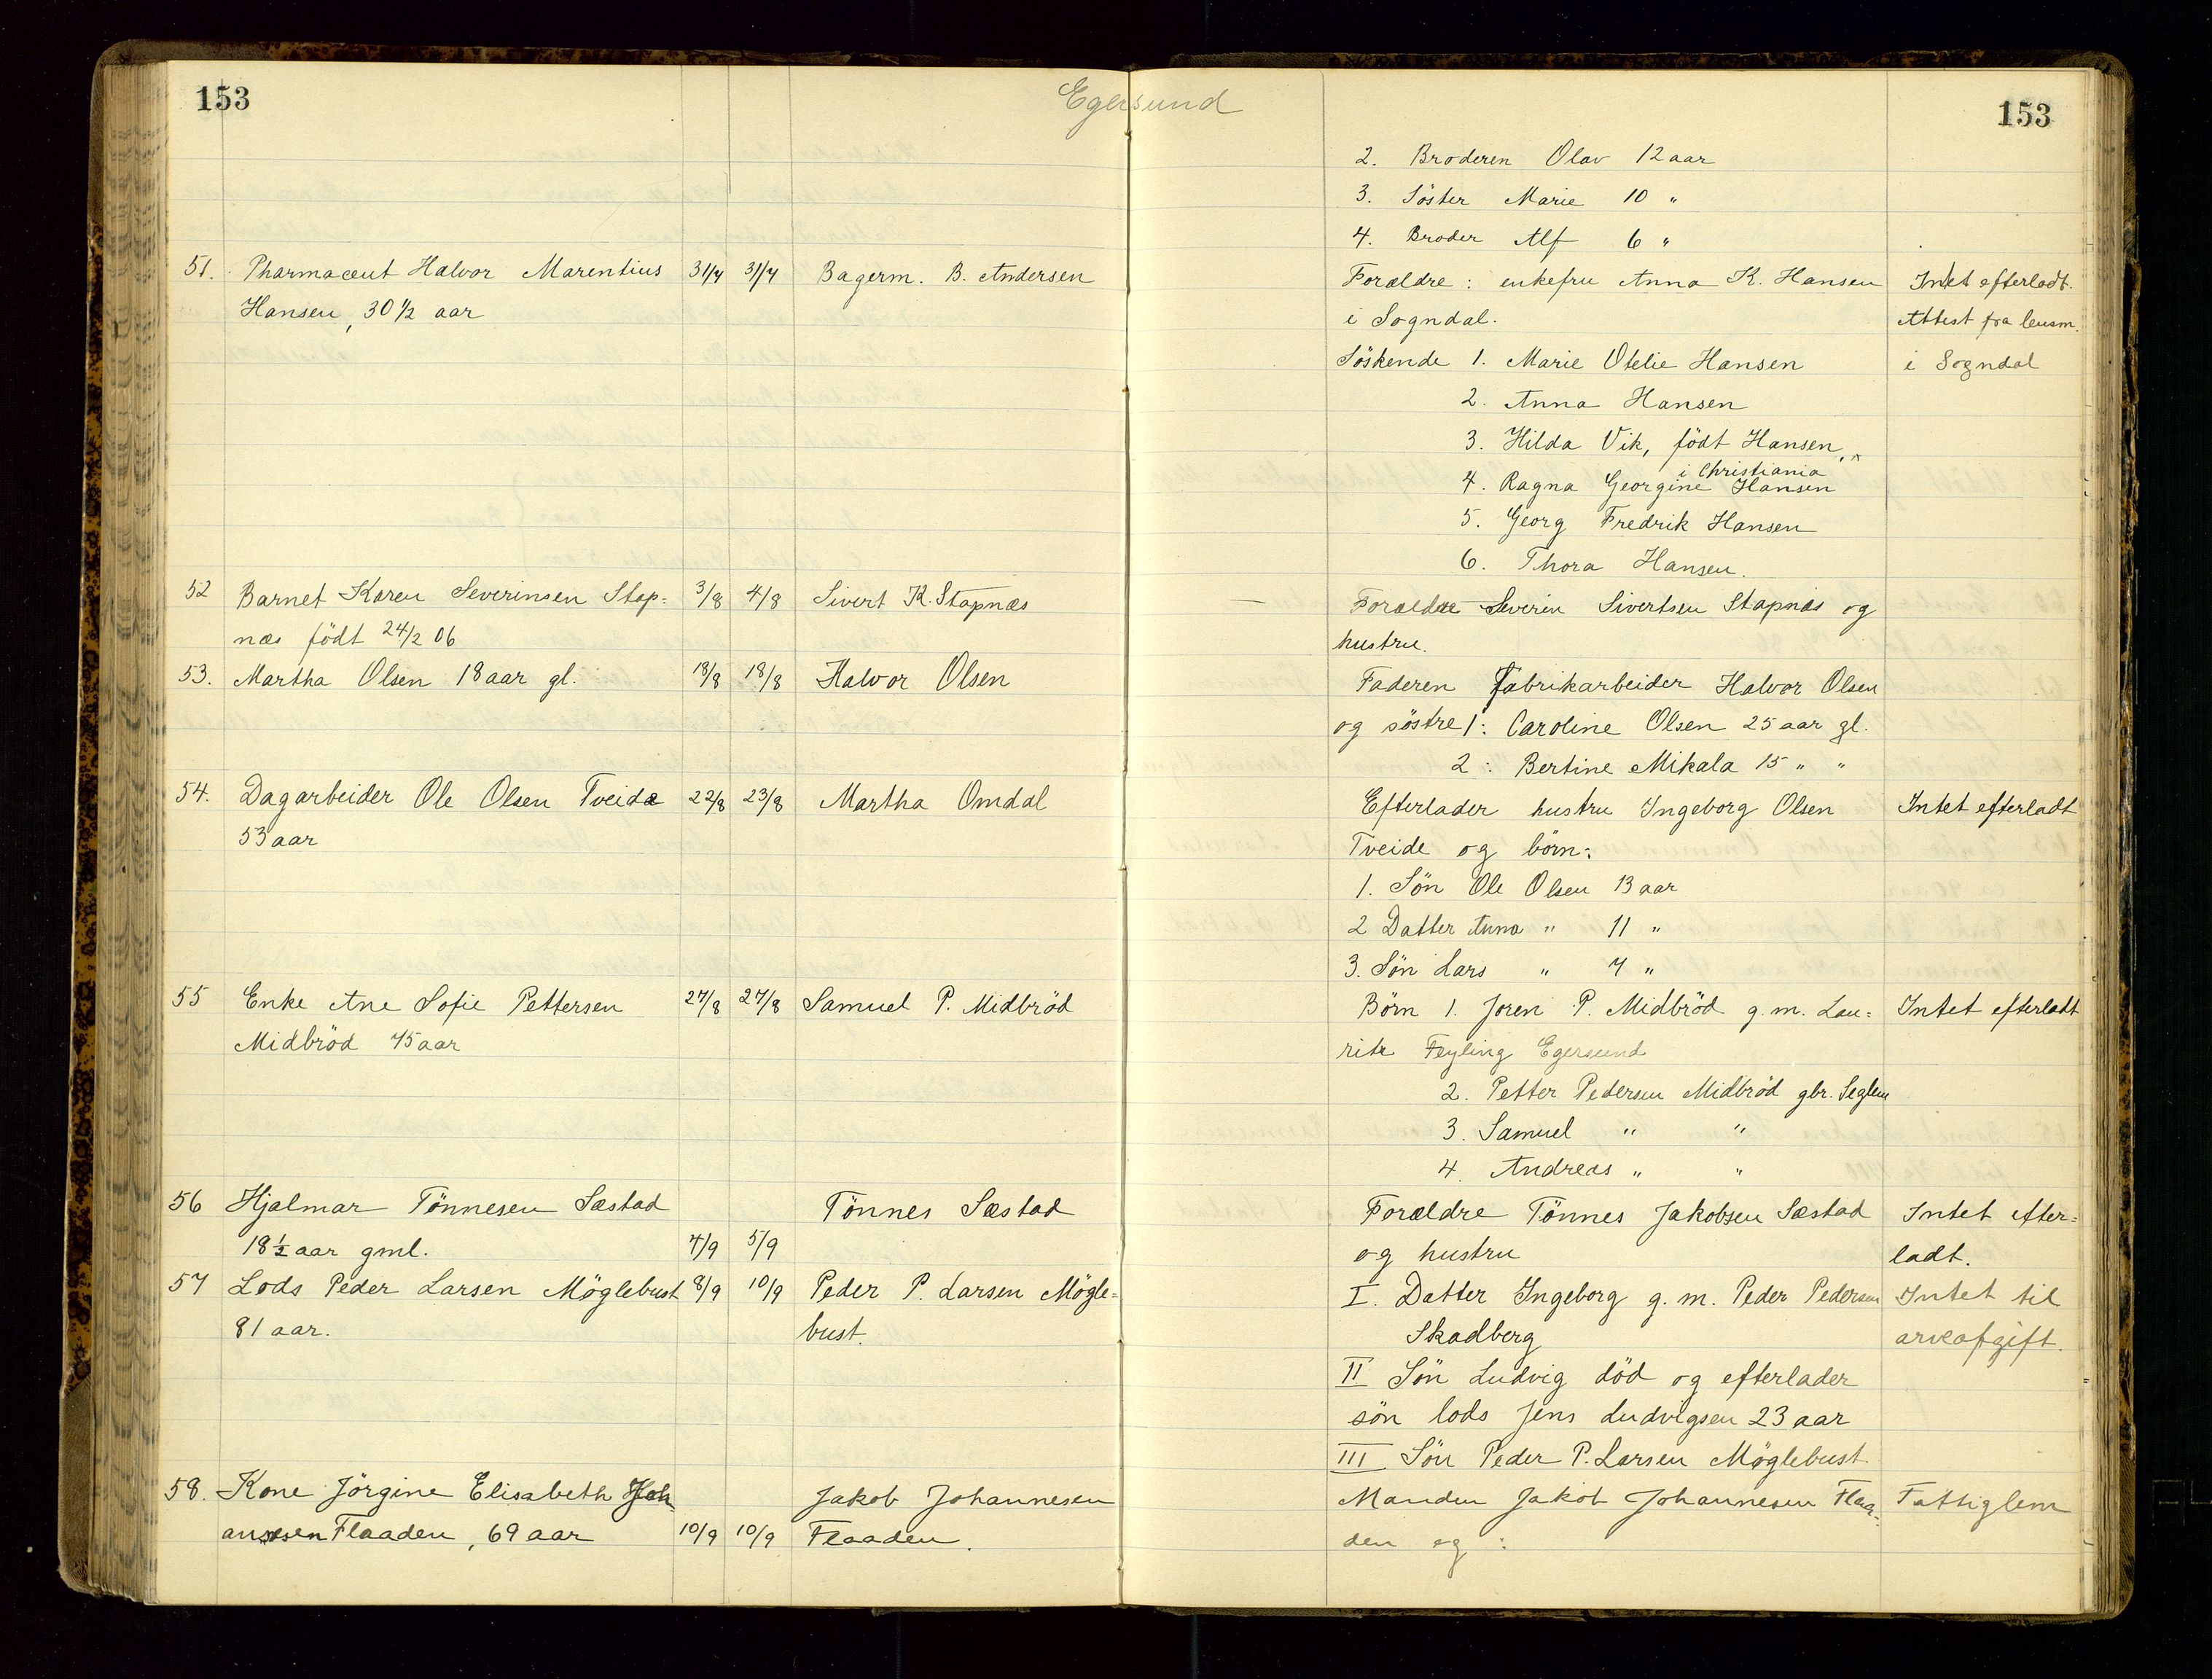 153
Egersund
153
2. Broderen Olav 12 aar
3. Söster Marie 10 "
4. Broder Alf 6 "
51. Pharmaceut Halvor Marentius 31/7 31/7 Bagerm. B. Andersen Forældre: enkefru Anna K. Hansen Intet efterladt.
Hansen, 30 1/2 aar i Sogndal. Attest fra lensm.
Söskende 1. Marie Otelie Hansen i Sogndal
2. Anna Hansen
3. Hilda Vik, födt Hansen,
i Christiania
4. Ragna Georgine Hansen
5. Georg Fredrik Hansen
6. Thora Hansen.
52 Barnet Karen Severinsen Stap= 3/8 4/8 Sivert K. Stapnæs — Forældre Severin Sivertsen Stapnæs og
næs födt 24/2 06 hustru.
53. Martha Olsen 18 aar gl. 18/8 18/8 Halvor Olsen Faderen Fabrikarbeider Halvor Olsen
og söstre 1: Caroline Olsen 25 aar gl.
2: Bertine Mikala 15 " "
54. Dagarbeider Ole Olsen Tveide 22/8 23/8 Martha Omdal Efterlader hustru Ingeborg Olsen Intet efterladt
53 aar Tveide og börn:
1. Sön Ole Olsen 13 aar
2 Datter Anna " 11 "
3. Sön Lars " 7 "
55 Enke Ane Sofie Pettersen 27/8 27/8 Samuel P. Midbröd Börn 1. Joren P. Midbröd g. m. Lau= Intet efterladt
Midbröd 75 aar ritz Feyling Egersund
2. Petter Pedersen Midbröd gbr. Seglem
3. Samuel " "
4. Andreas " "
56 Hjalmar Tönnesen Sæstad Tönnes Sæstad Forældre Tönnes Jakobsen Sæstad Intet efter=
18 1/2 aar gml. 4/9 5/9 og hustru ladt.
57 Lods Peder Larsen Möglebust 8/9 10/9 Peder P. Larsen Mögle= I. Datter Ingeborg g. m. Peder Pedersen Intet til
81 aar. bust. Skadberg arveafgift.
II Sön Ludvig död og efterlader
sön lods Jens Ludvigsen 23 aar
III Sön Peder P. Larsen Möglebust
58. Kone Jörgine Elisabeth Joh Jakob Johannesen Manden Jakob Johannesen Flaa- Fattiglem
ansen Flaaden, 69 aar 10/9 10/9 Flaaden. den og: